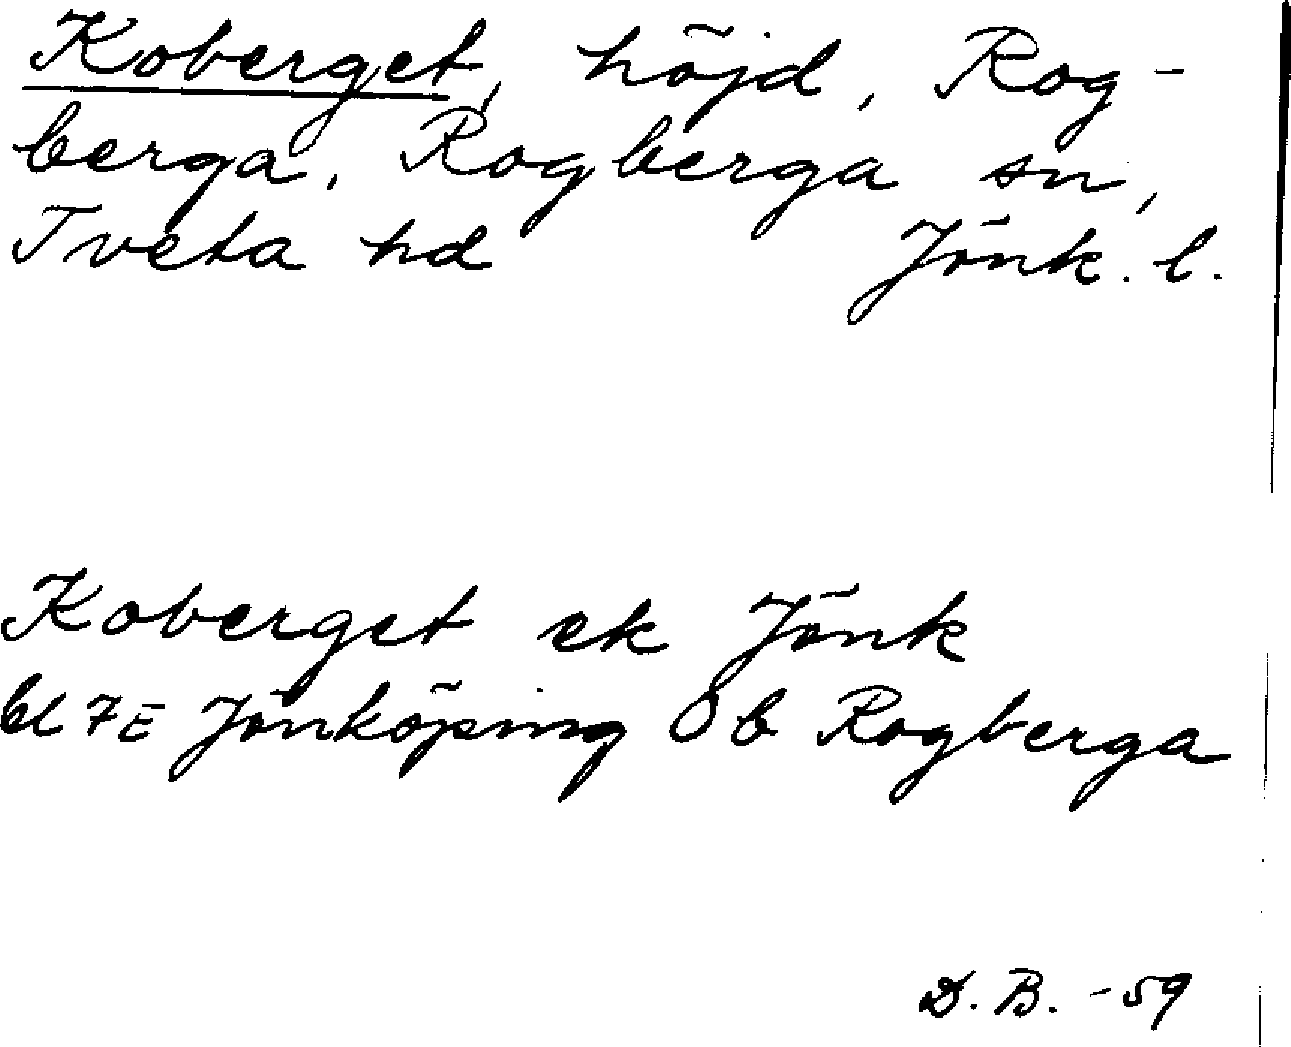 Koberget, höjd, Rog-
berga, Rogberga sn,
Tveta hd Jönk. l.
Koberget ek Jönk
bl 7E Jönköping Ob Rogberga
D.B. -59